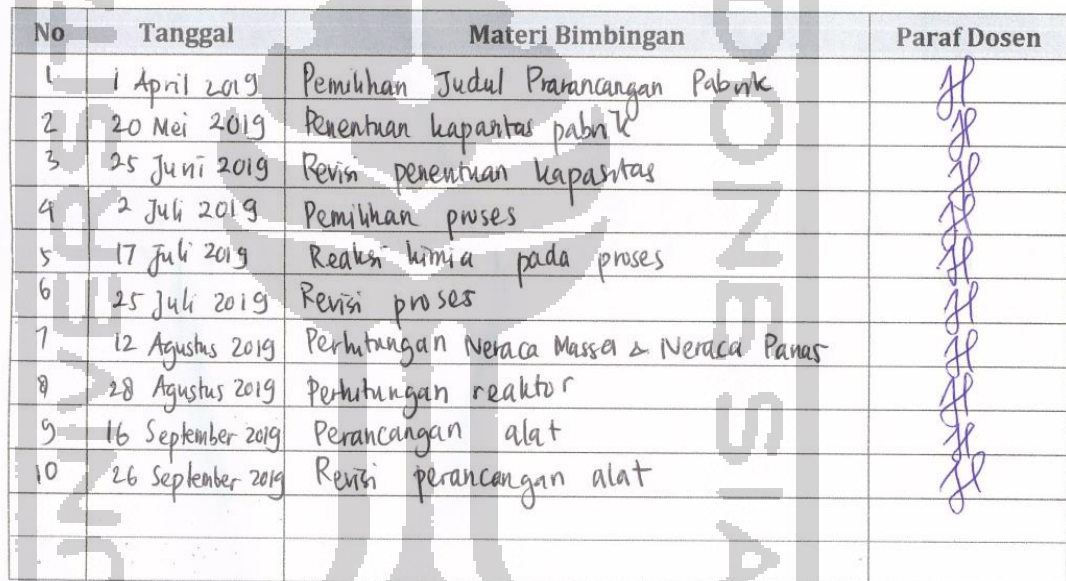 No Tanggal Materi Bimbingan Paraf Dosen
1 1 April 2019 Pemilihan Judul Prarancangan Pabrik
2 20 Mei 2019 Penentuan kapasitas pabrik
3 25 Juni 2019 Revisi penentuan kapasitas
4 2 Juli 2019 Pemilihan proses
5 17 Juli 2019 Reaksi kimia pada proses
6 25 Juli 2019 Revisi proses
7 12 Agustus 2019 Perhitungan Neraca Massa & Neraca Panas
8 28 Agustus 2019 Perhitungan reaktor
9 16 September 2019 Perancangan alat
10 26 September 2019 Revisi perancangan alat